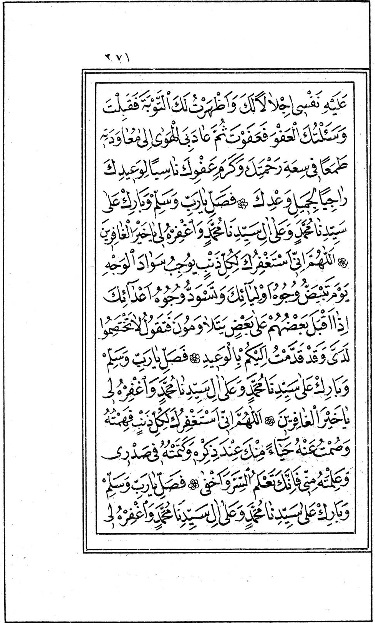 ٢٧١
عَلَيْهِ نَفْسِى اِجْلَالًا لَكَ وَاَظْهَرْتُ لَكَ التَّوْبَةَ فَقَبِلْتَ
وَسَئَلْتُكَ الْعَفْوَ فَعَفَوْتَ ثُمَّ عَادَنِى الْهَوٰى اِلٰى مُعَاوَدَتِهِ
طَمَعًا فِى سَعَةِ رَحْمَتِكَ وَكَرَمِ عَفْوِكَ نَاسِيًا لِوَعِيدِكَ
رَاجِيًا لِجَمِيلِ وَعْدِكَ ۞ فَصَلِّ يَارَبِّ وَسَلِّمْ وَبَارِكْ عَلٰى
سَيِّدِنَا مُحَمَّدٍ وَعَلٰى اٰلِ سَيِّدِنَا مُحَمَّدٍ وَاغْفِرْهُ لِى يَاخَيْرَ الْغَافِرِينَ
۞ اَللّٰهُمَّ اِنِّى اَسْتَغْفِرُكَ لِكُلِّ ذَنْبٍ يُوجِبُ سَوَادَ الْوَجْهِ
يَوْمَ تَبْيَضُّ وُجُوهُ اَوْلِيَائِكَ وَتَسْوَدُّ وُجُوهُ اَعْدَائِكَ
اِذَا اَقْبَلَ بَعْضُهُمْ عَلٰى بَعْضٍ يَتَلَاوَمُونَ فَتَقُولُ لَا تَخْتَصِمُوا
لَدَىَّ وَقَدْ قَدَّمْتُ اِلَيْكُمْ بِالْوَعِيدِ ۞ فَصَلِّ يَارَبِّ وَسَلِّمْ
وَبَارِكْ عَلٰى سَيِّدِنَا مُحَمَّدٍ وَعَلٰى اٰلِ سَيِّدِنَا مُحَمَّدٍ وَاغْفِرْهُ لِى
يَاخَيْرَ الْغَافِرِينَ ۞ اَللّٰهُمَّ اِنِّى اَسْتَغْفِرُكَ لِكُلِّ ذَنْبٍ فَهِمْتُهُ
وَصَمَتُّ عَنْهُ حَيَاءً مِنْكَ عِنْدَ ذِكْرِهِ وَكَتَمْتُهُ فِى صَدْرِى
وَعَلِمْتَهُ مِنِّى فَاِنَّكَ تَعْلَمُ السِّرَّ وَاَخْفٰى ۞ فَصَلِّ يَارَبِّ وَسَلِّمْ
وَبَارِكْ عَلٰى سَيِّدِنَا مُحَمَّدٍ وَعَلٰى اٰلِ سَيِّدِنَا مُحَمَّدٍ وَاغْفِرْهُ لِى